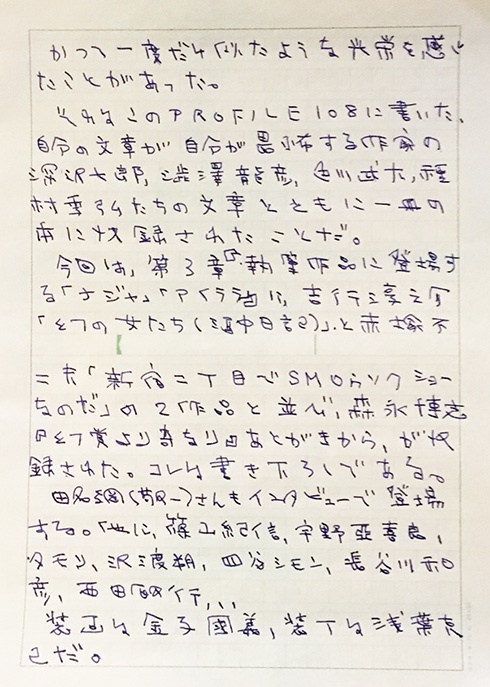 かつて一度だけ似たような光栄を感じ
たことがあった。
それはこのPROFILE108に書いた、
自分の文章が自分が畏怖する作家の
深沢七郎，澁澤龍彦，色川武大，種
村季弘たちの文章とともに一冊の
本に収録されたことだ。
今回は、第3章『執筆作品に登場す
る「ナジャ」「アイララ」他に、吉行淳之介
「幻の女たち(酒中日記)」と赤塚不
二夫「新宿二丁目でSMロウソクショー
なのだ」の2作品と並び、森永博志
『幻覚より奇なり』あとがきから、が収
録された。コレは書き下ろしである。
田名網(敬一)さんもインタビューで登場
する。他に，篠山紀信，宇野亞喜良，
タモリ，沢渡朔，四谷シモン，長谷川和
彦，西田敏行，，，
装画は金子國義，装丁は浅葉克
己だ。